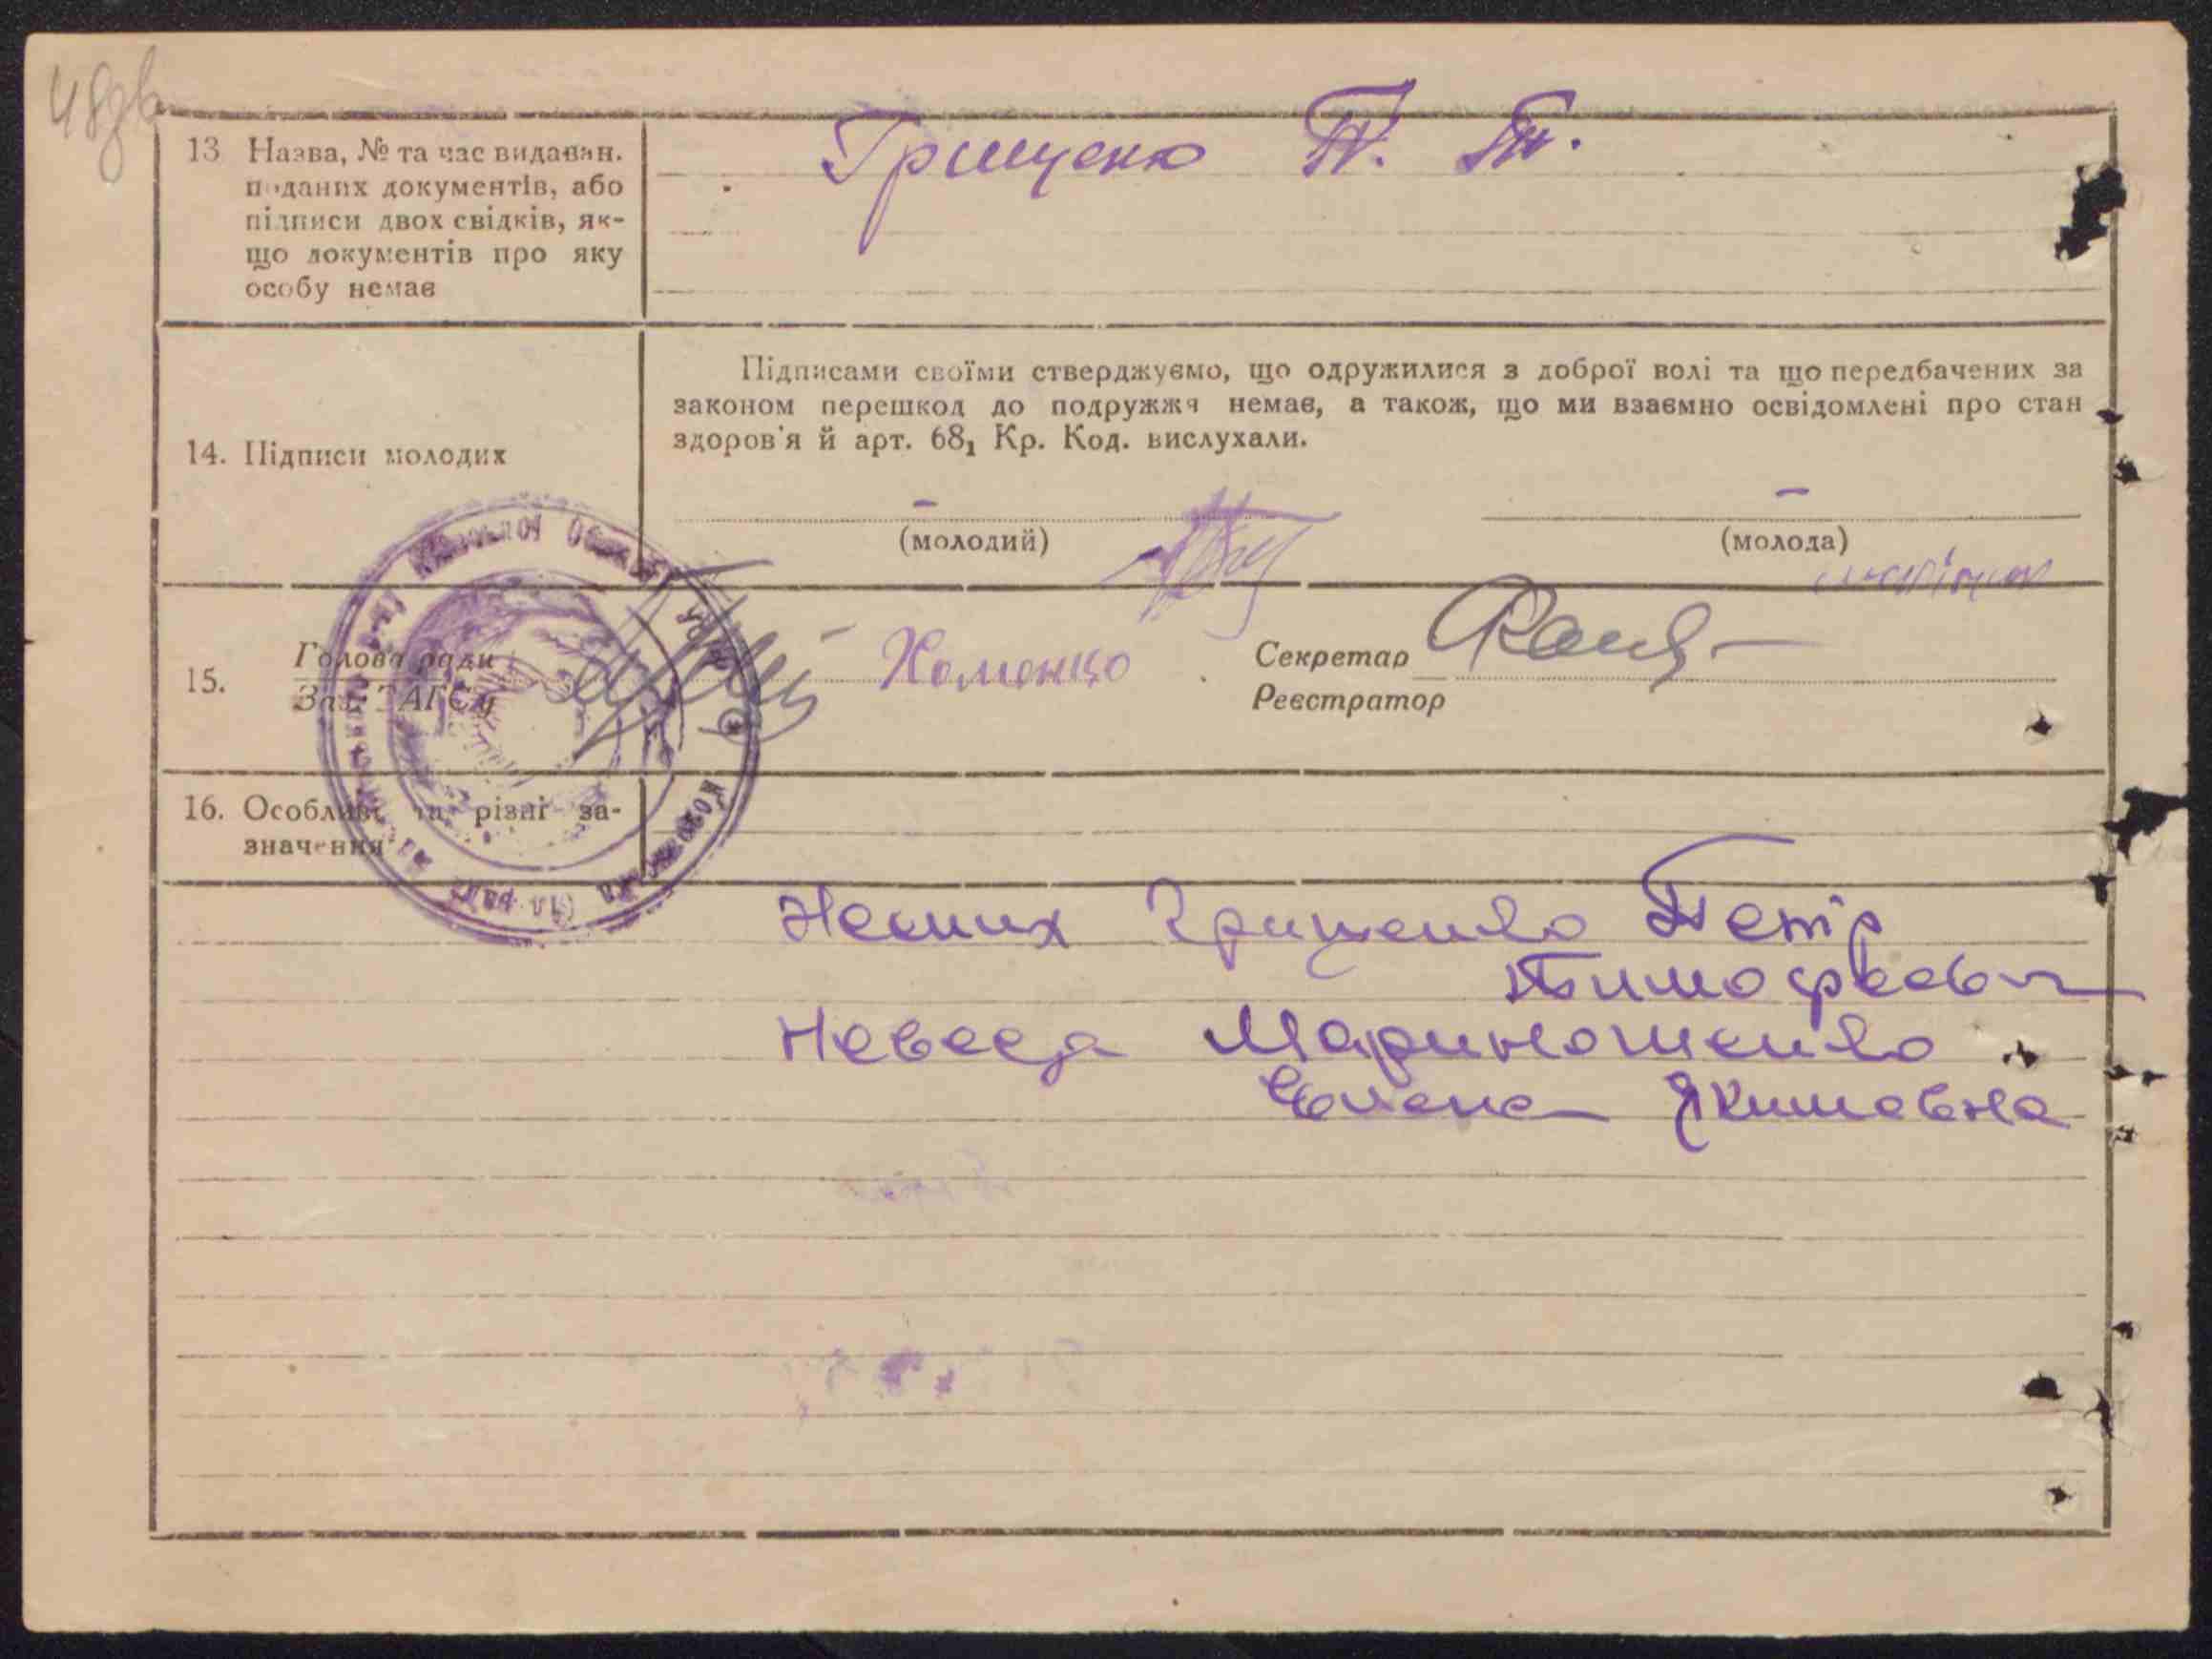 48зв
Грищенко П. Т.
13 Назва, № та час видаван.
поданих документів, або
підписи двох свідків, як-
що документів про яку
особу немає
Підписами своїми стверджуємо, що одружилися з доброї волі та що передбачених за
законом перешкод до подружжя немає, а також, що ми взаємно освідомлені про стан
здоров'я й арт. 68₁ Кр. Код. вислухали.
14. Підписи молодих
(молодий)
(молода)
15.
Голова ради
Зав. ЗАГСу
Хоменко
Секретар
Реєстратор
16. Особливі та різні за-
значення
Жених Грищенко Петір
Тимофеевич
Невеста
Елена Якимовна